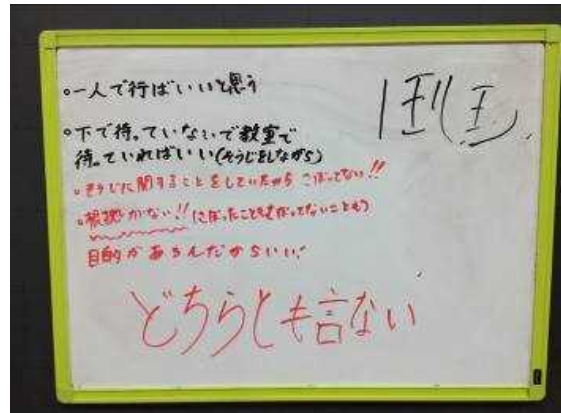 。一人で行ばいいと思う
。下で待っていないで教室で
待っていればいい(そうじをしながら)
。そうじに関することをしていたから こぼってない!!
。根拠がない!! にぼったこともむだってないことも
目的があるんだからいい!
どちらとも言ない